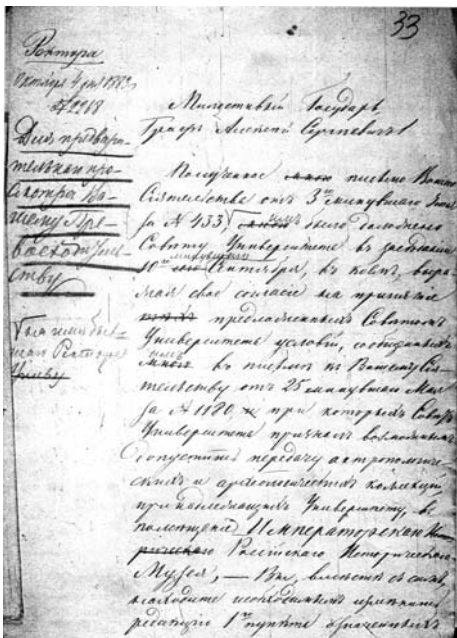 33
Ректора
Октября 4 дня 1883
№ 2218
Для предвари-
тельнаго про-
смотра Ва-
шему Пре-
восходитель-
ству
на имя быв-
шаго Ректора
Милостивый Государь
Графъ Алексей Сергеевичъ!
Полученное мною письмо Вашего
Сіятельства отъ 3го минувшаго
за № 433 было доложено
Совѣту Университета въ засѣданіи
10го минувшаго Сентября, въ коемъ, выра-
жая свое согласіе на принятіе
предложенныхъ Совѣтомъ
Университета условій, сообщенныхъ
въ письмѣ къ Вашему Сія-
тельству отъ 25 минувшаго Мая
за № 1180, при которыхъ Совѣтъ
Университета призналъ возможнымъ
допустить передачу антропологиче-
скихъ и археологическихъ коллекцій
принадлежащихъ Университету, въ
помѣщеніе Императорскаго
Россійскаго Историческаго
Музея, — Вы, вмѣстѣ съ симъ,
находите необходимымъ измѣнить
редакцію 1го пункта означенныхъ